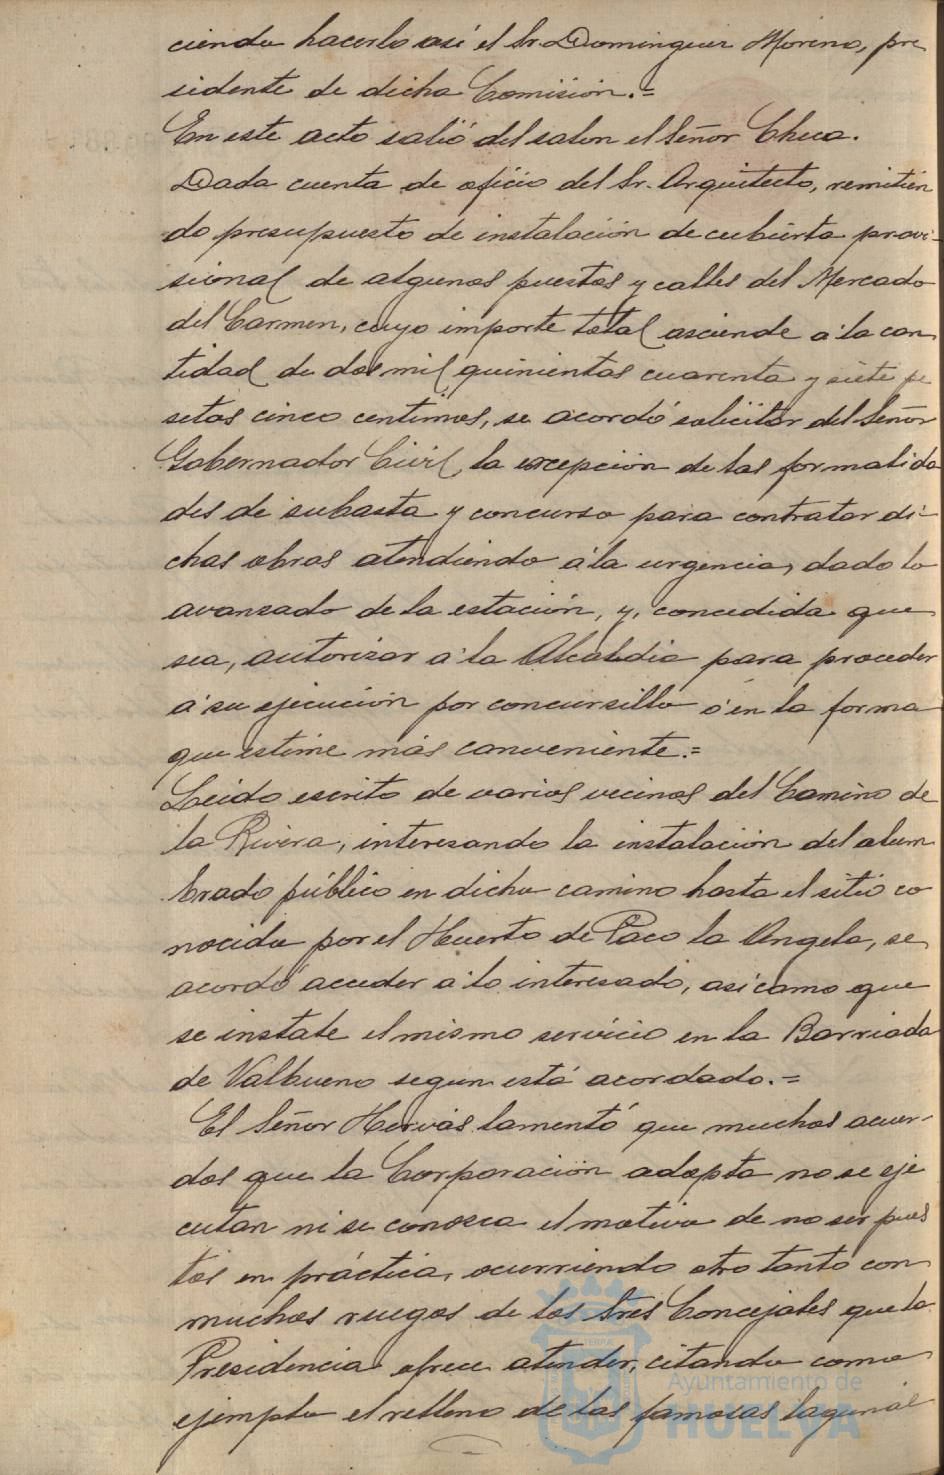 ciendo hacerlo así el Sr. Dominguez Moreno, pre
sidente de dicha Comisión.=
En este acto salió del salon el Señor Checa.
Dada cuenta de oficio del Sr. Arquitecto, remitien
do presupuesto de instalación de cubierta provi-
sional de algunos puestos y calles del Mercado
del Carmen, cuyo importe total asciende a la can
tidad de dos mil quinientas cuarenta y siete pe
setas cinco centimos, se acordó solicitar del Señor
Gobernador Civil, la excepción de las formalida
des de subasta y concurso para contratar di-
chas obras atendiendo á la urgencia, dado lo
avanzado de la estación, y, concedida que
sea, autorizar a la Alcaldia para proceder
á su ejecución por concursillo ó en la forma
que estime más conveniente.=
Leido escrito de varios vecinos del Camino de
la Rivera, interesando la instalación del alum
brado público en dicho camino hasta el sitio co
nocido por el Huerto de Paco la Angela, se
acordó acceder a lo interesado, así como que
se instale el mismo servicio en la Barriada
de Valbueno segun está acordado.=
El Señor Hervás lamentó que muchos acuer-
dos que la Corporación adopta no se eje
cutan ni se conozca el motivo de no ser pues
tos en práctica, ocurriendo otro tanto con
muchos ruegos de los Sres Concejales que la
Presidencia ofrece atender, citando como
ejemplo el relleno de las famosas lagunas
Ayuntamiento de
HUELVA